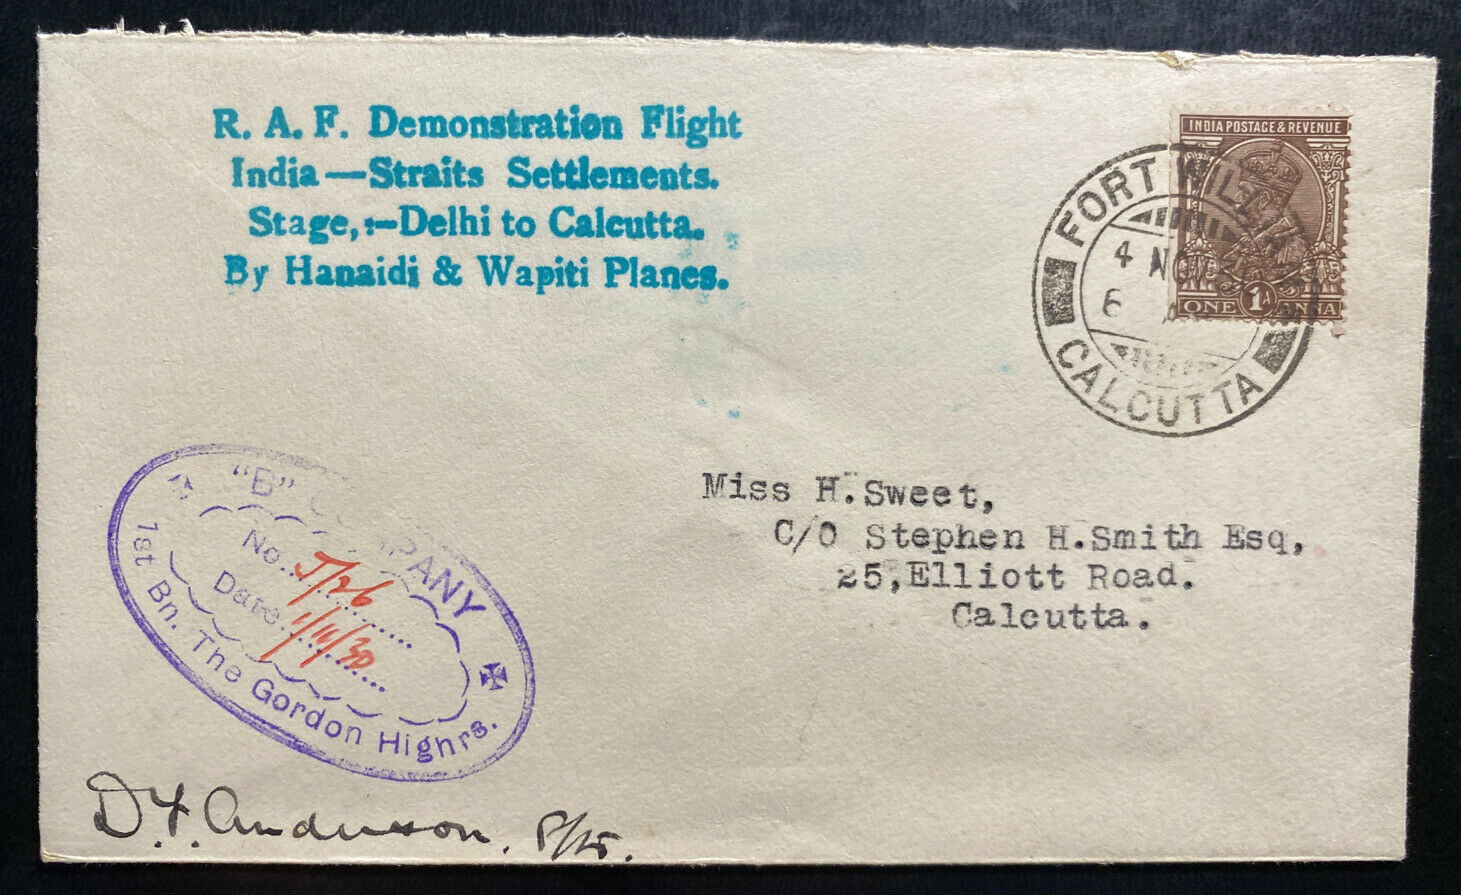 R. A. F. Demonstration Flight
India—Straits Settlements.
Stage,:—Delhi to Calcutta.
By Hanaidi & Wapiti Planes.
INDIA POSTAGE & REVENUE
ONE 1A ANNA
FORT WILLIAM
4 NOV
6
CALCUTTA
Miss H.Sweet,
C/O Stephen H.Smith Esq,
25,Elliott Road.
Calcutta.
"B" COMPANY
No. 5/26
Date 1/11/30
1st Bn. The Gordon Highrs.
D.F. Anderson.